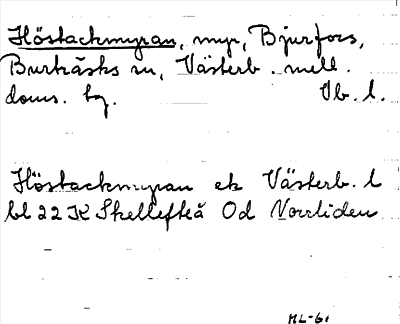 Höstackmyran, myr, Bjurfors,
Burträsks sn, Västerb. mell.
doms. tg. Vb. l.
Höstackmyran ek Västerb. l
bl 22 K Skellefteå Od Norrliden
ML-61